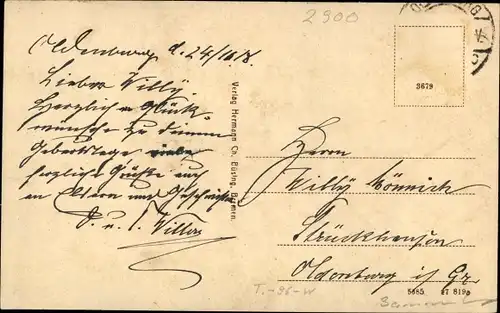 2900
Oldenburg d. 24/10.18.
Lieber Willy.
Herzlichen Glück-
wünsche zu deinem
Geburtstage
herzliche Grüße auch
an Eltern und Geschwister
Verlag Hermann Ch. Büsing, Bremen.
3679
Herrn
Willy Könnick
Strückhausen
Oldenburg i/ Gr.
T.-96-W